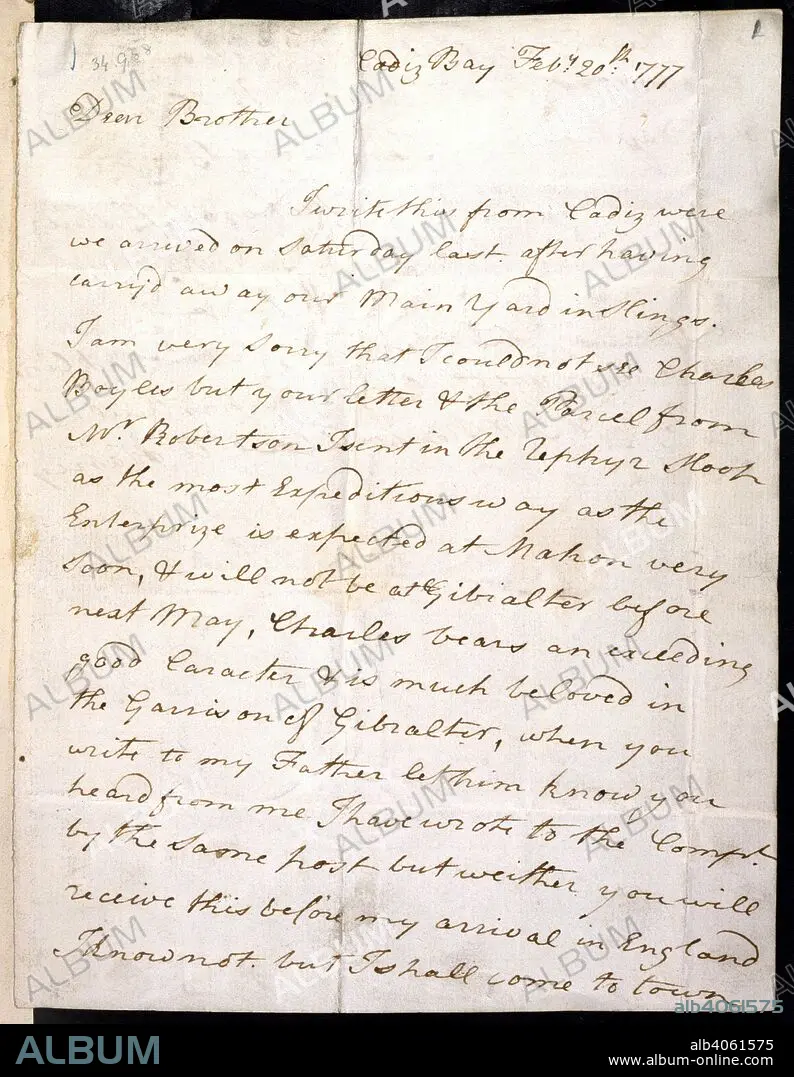 1
34 988
Cadiz Bay Feby 20th 1777
Dear Brother
I write this from Cadiz were
we arrived on Saturday last after having
carry'd away our Main Yard in Slings.
I am very Sorry that I could not see Charles
Boyles but your letter & the Parcel from
Mr Robertson I sent in the Zephyr Sloop
as the most Expeditious way as the
Enterprize is expected at Mahon very
Soon, & will not be at Gibralter before
next May, Charles bears an exceeding
good Caracter & is much beloved in
the Garrison of Gibralter, when you
write to my Father let him know you
heard from me I have wrote to the Compt.
by the Same post but weither you will
receive this before my arrival in England
I know not. but I shall come to town
ALBUM
alb4061575
ALBUM
alb4061575
www.album-online.com